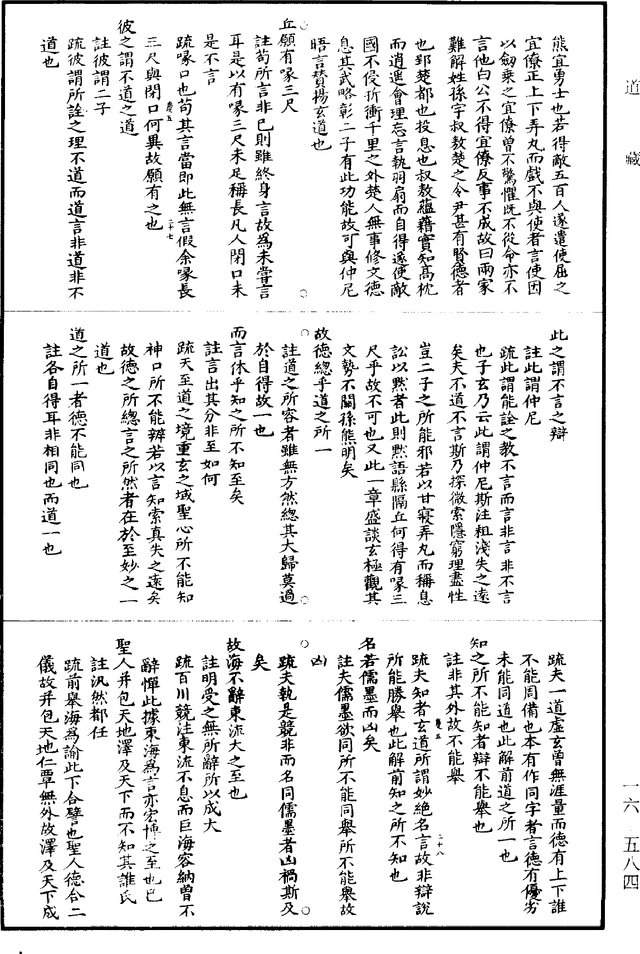 道藏
熊宜勇士也若得敵五百人遂遣使屈之
宜僚正上下弄丸而戲不與使者言使因
以劍乗之宜僚曾不驚懼既不從命亦不
言他白公不得宜僚反事不成故曰兩家
難解姓孫字叔敖楚之令尹甚有賢德者
也郢楚都也投息也叔敖蘊藉實知高枕
而逍遥會理忘言執羽扇而自得遂使敵
國不侵折衝千里之外楚人無事修文德
息其武略彰二子有此功能故可與仲尼
晤言贊揚玄道也
丘願有喙三尺
註苟所言非已則雖終身言故為未嘗言
耳是以有喙三尺未足稱長凡人閉口未
是不言
疏喙口也苟其言當即此無言假余喙長
三尺與閉口何異故願有之也
卷五
二十七
彼之謂不道之道
註彼謂二子
疏彼謂所詮之理不道而道言非道非不
道也
此之謂不言之辯
註此謂仲尼
疏此謂能詮之教不言而言非言非不言
也子玄乃云此謂仲尼斯注粗淺失之遠
矣夫不道不言斯乃探微索隱窮理盡性
豈二子之所能邪若以甘寢弄丸而稱息
訟以默者此則默語懸隔丘何得有喙三
尺乎故不可也又此一章盛談玄極觀其
文勢不關孫熊明矣
故德總乎道之所一
註道之所容者雖無方然總其大歸莫過
於自得故一也
而言休乎知之所不知至矣
註言出其分非至如何
疏夫至道之境重玄之域聖心所不能知
神口所不能辨若以言知索真失之遠矣
故德之所總言之所然者在於至妙之一
道也
道之所一者德不能同也
註各自得耳非相同也而道一也
疏夫一道虛玄曾無涯量而德有上下誰
不能周備也本有作同字者言德有優劣
未能同道也此解前道之所一也
知之所不能知者辯不能舉也
註非其外故不能舉
卷五
二十八
疏夫知者玄道所謂妙絶名言故非辯說
所能勝舉也此解前知之所不知也
名若儒墨而凶矣
註夫儒墨欲同所不能同舉所不能舉故
凶
疏夫執是競非而名同儒墨者凶禍斯及
矣
故海不辭東流大之至也
註明受之無所辭所以成大
疏百川競注東流不息而巨海容納曾不
辭憚此據東海為言亦宏博之至也已
聖人并包天地澤及天下而不知其誰氏
註汎然都任
疏前舉海為諭此下合譬也聖人德合二
儀故并包天地仁覃無外故澤及天下成
一六 五八四